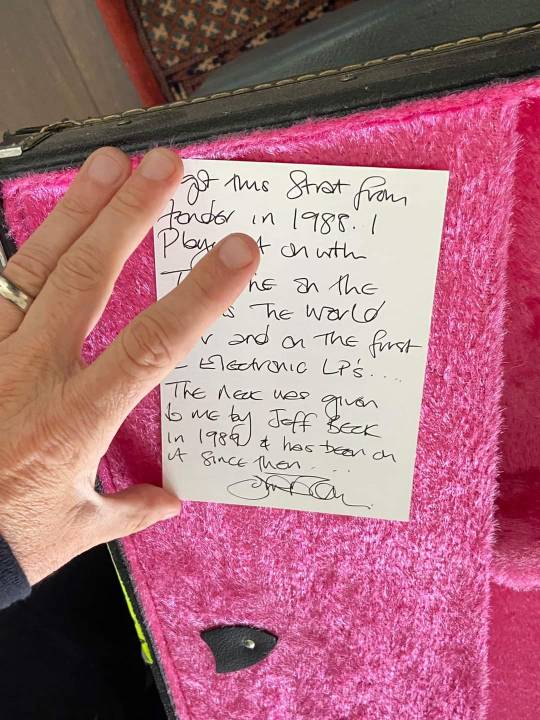 got this Strat from
Fender in 1988. I
on with
on the
The World
and on the first
Electronic LP's....
The neck was given
to me by Jeff Beck
in 1989 & has been on
it since then....